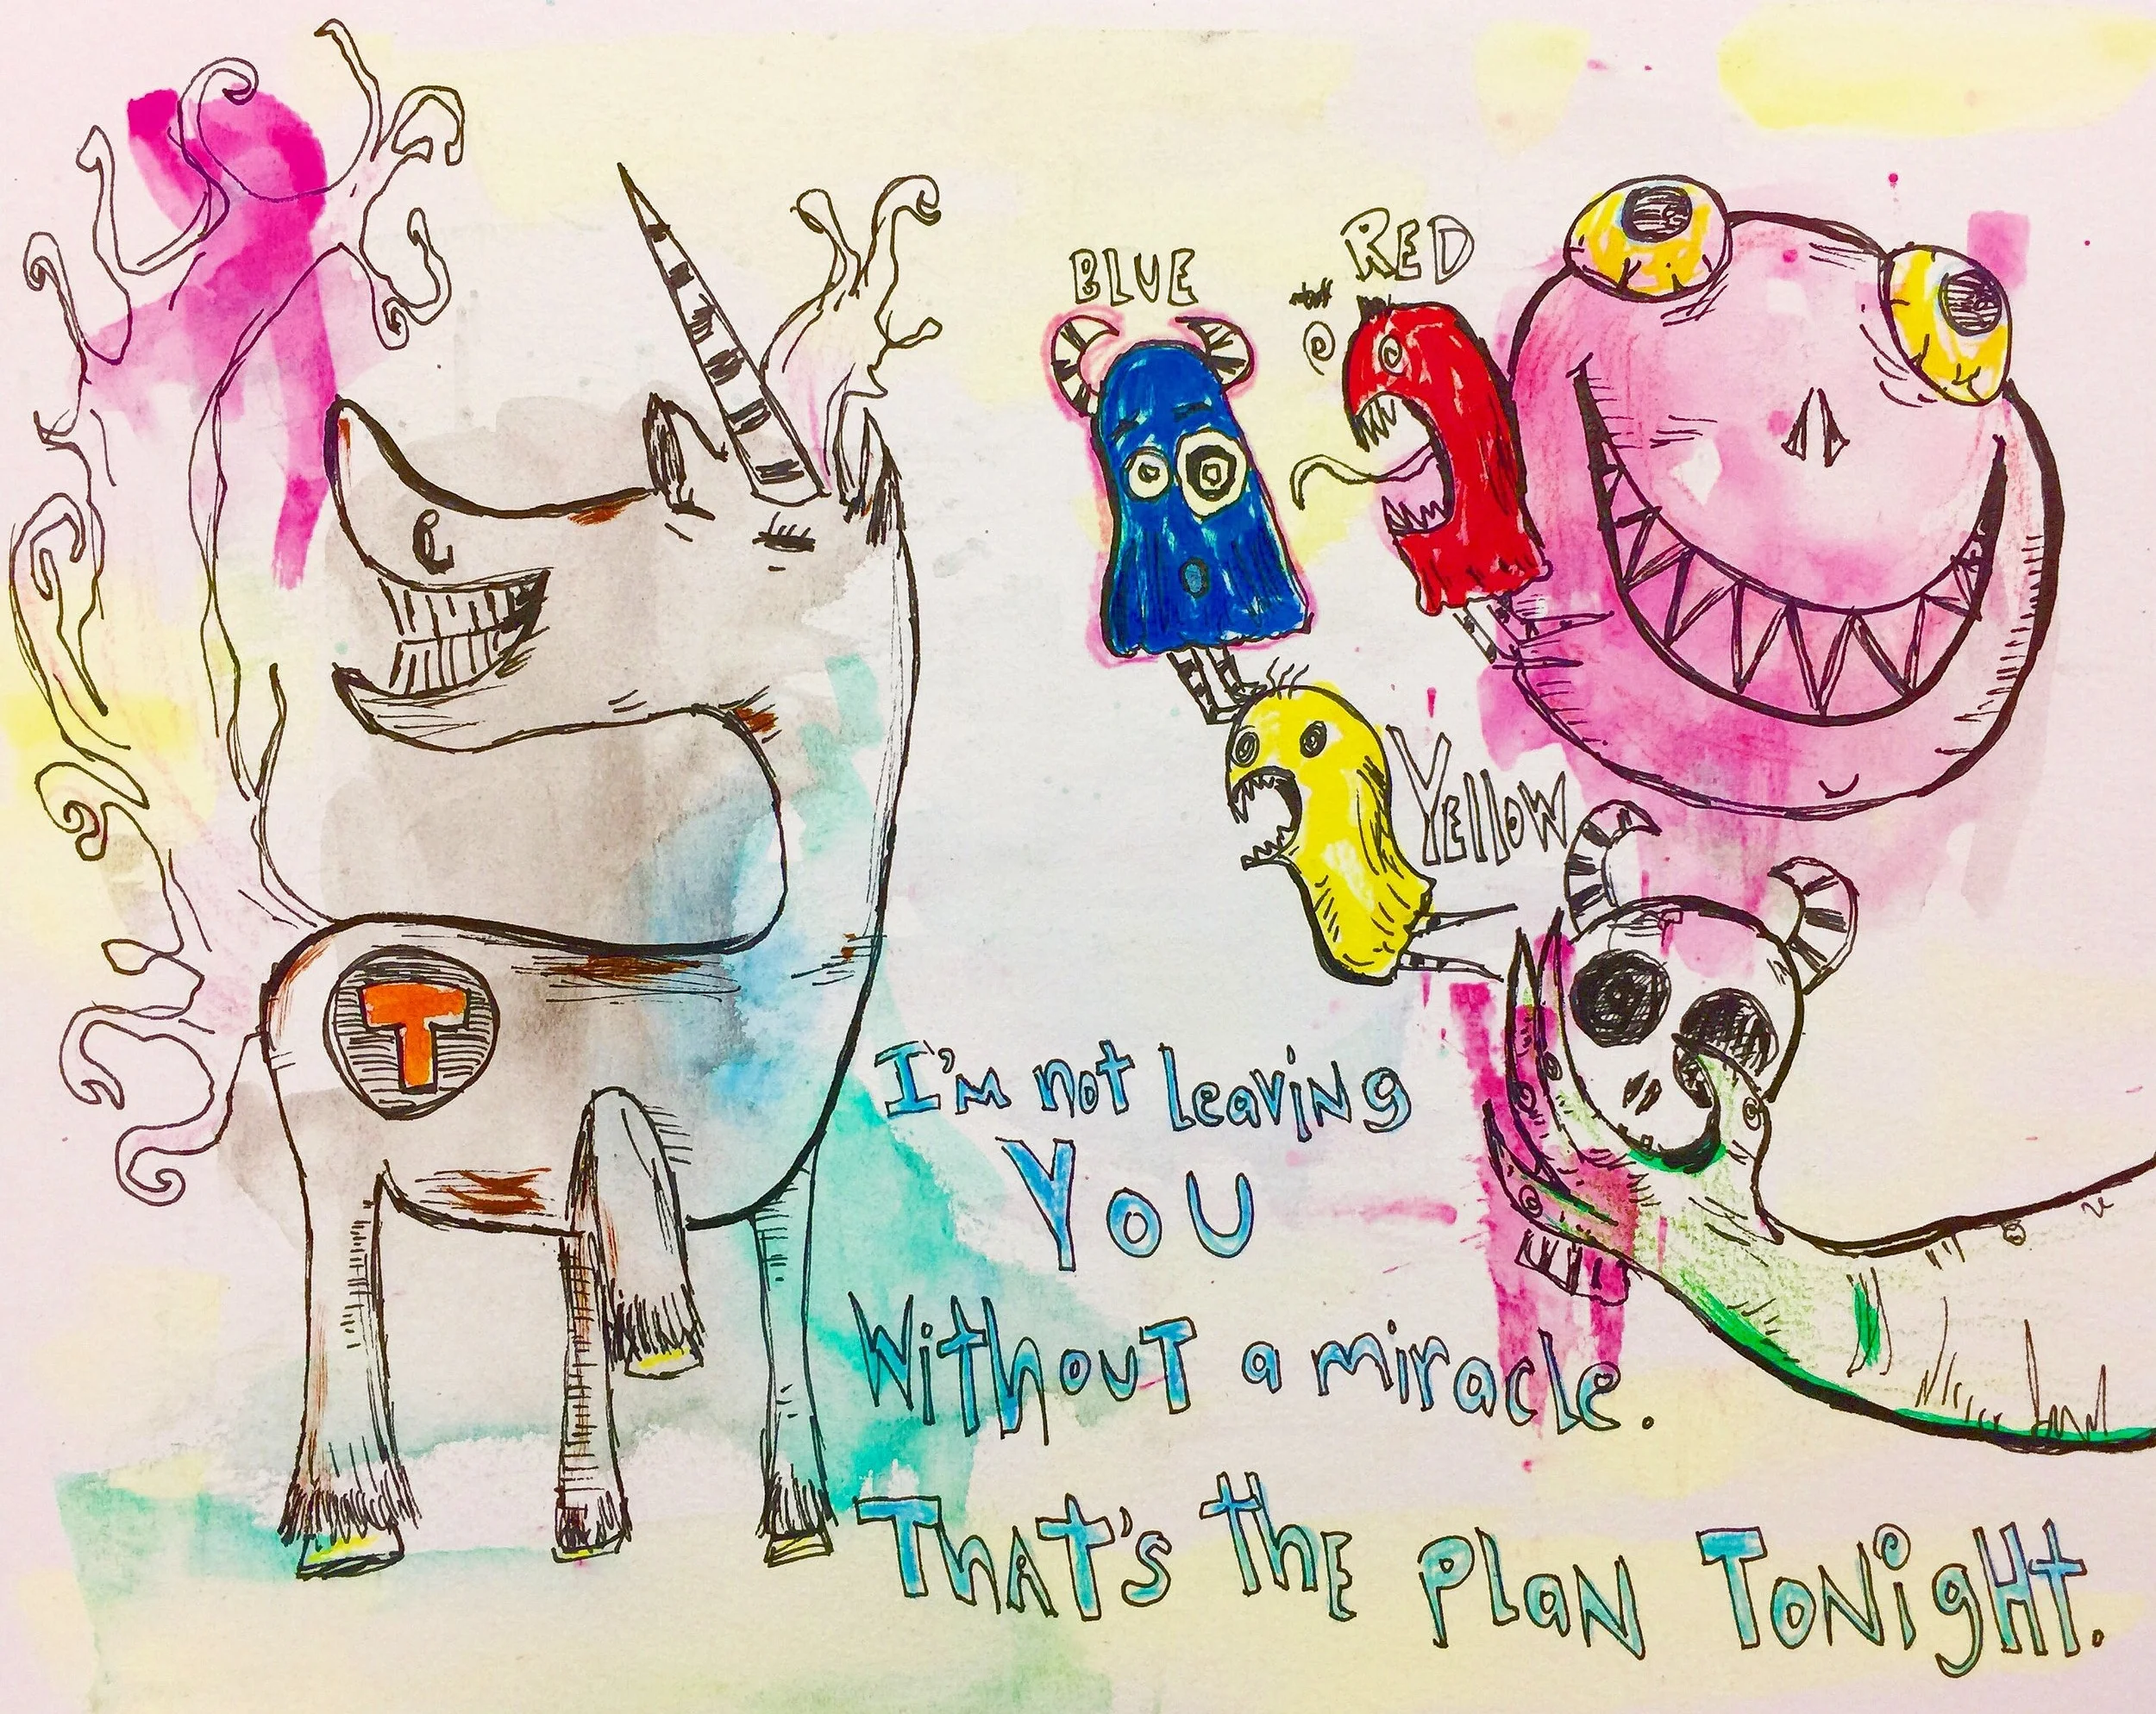 BLUE
RED
YellOW
T
I'm not leaving
YOU
Without a miracle.
THAT's the PlaN TONigHt.